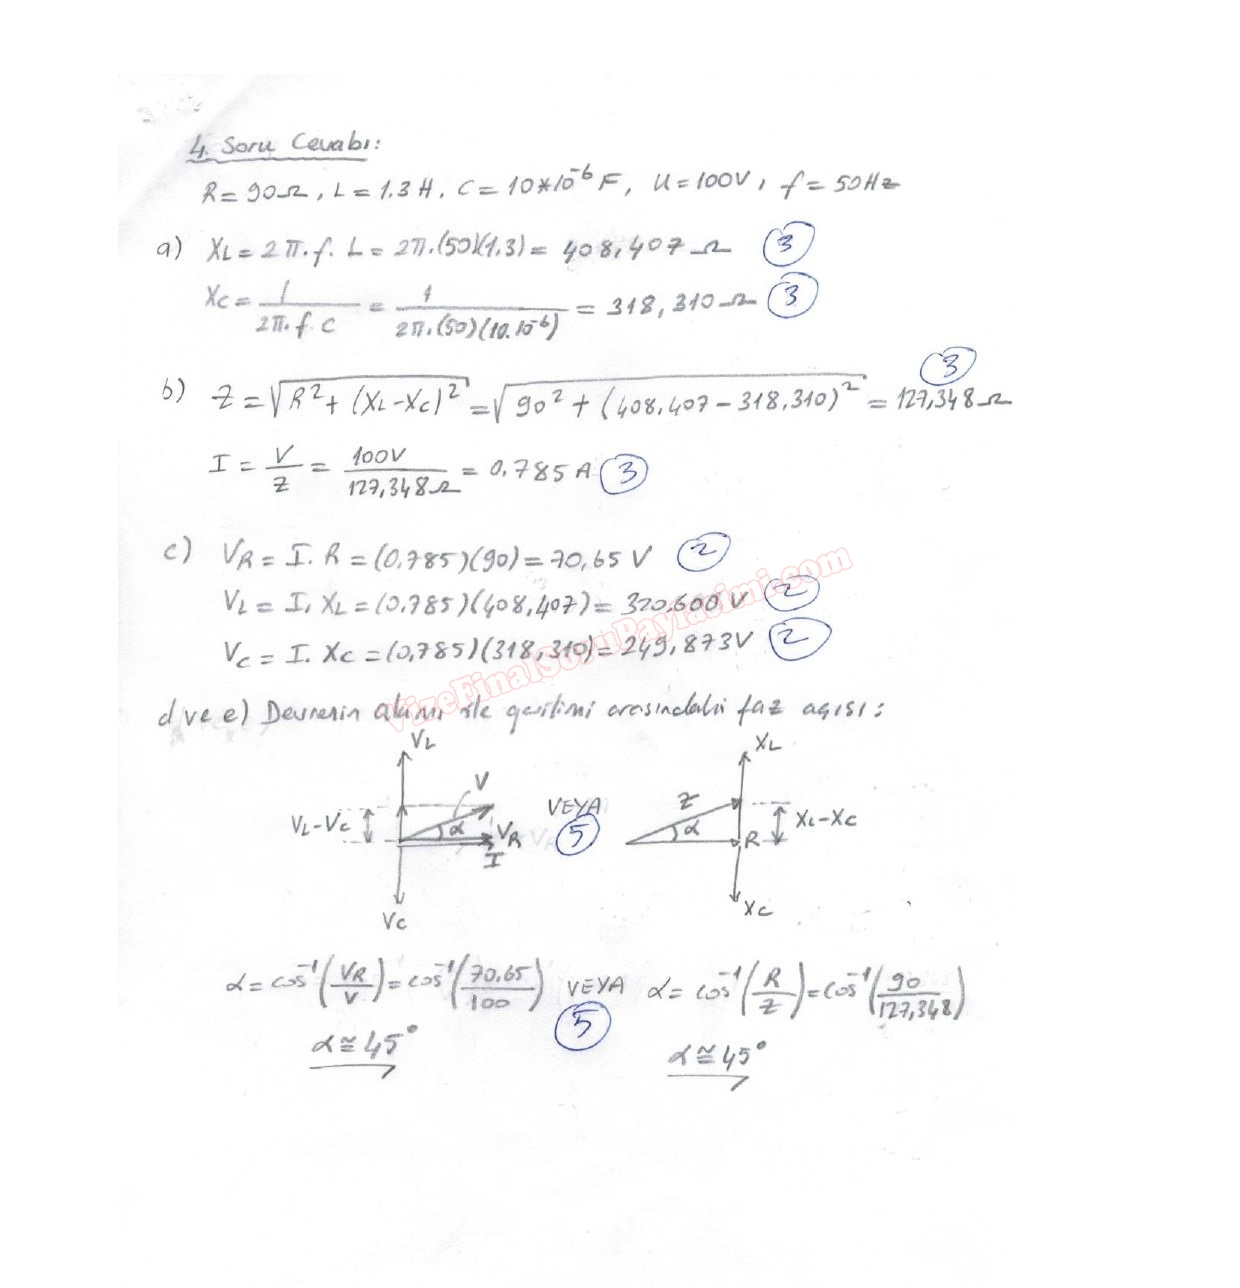 4. Soru Cevabı:
R=90Ω, L=1.3H, C=10*10⁻⁶F, U=100V, f=50Hz
a) XL=2π.f.L=2π.(50)(1.3)=408,407Ω (3)
XC=1/(2π.f.C)=1/(2π.(50)(10.10⁻⁶))=318,310Ω (3)
(3)
b) Z=√(R²+(XL-XC)²)=√(90²+(408,407-318,310)²)=127,348Ω
I=V/Z=100V/127,348Ω=0,785A (3)
c) VR=I.R=(0,785)(90)=70,65V (2)
VL=I.XL=(0,785)(408,407)=320.600V (2)
VC=I.XC=(0,785)(318,310)=249,873V (2)
VizeFinalSoruPaylasimi.com
d ve e) Devrenin akımı ile gerilimi arasındaki faz açısı:
VL XL
V Z
VL-VC α VR VEYA α R XL-XC
I (5)
VC XC
α=cos⁻¹(VR/V)=cos⁻¹(70,65/100) VEYA α=cos⁻¹(R/Z)=cos⁻¹(90/127,348)
(5)
α≅45° α≅45°